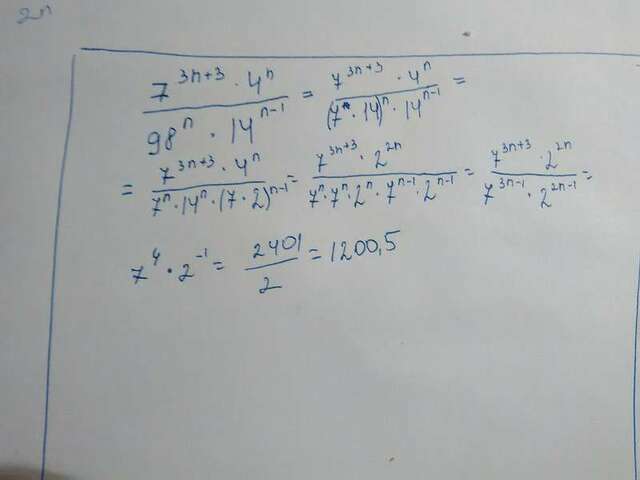 2n
\frac{7^{3n+3} \cdot 4^n}{98^n \cdot 14^{n-1}} = \frac{7^{3n+3} \cdot 4^n}{(7 \cdot 14)^n \cdot 14^{n-1}} =
= \frac{7^{3n+3} \cdot 4^n}{7^n \cdot 14^n \cdot (7 \cdot 2)^{n-1}} = \frac{7^{3n+3} \cdot 2^{2n}}{7^n \cdot 7^n \cdot 2^n \cdot 7^{n-1} \cdot 2^{n-1}} = \frac{7^{3n+3} \cdot 2^{2n}}{7^{3n-1} \cdot 2^{2n-1}} =
7^4 \cdot 2^{-1} = \frac{2401}{2} = 1200,5